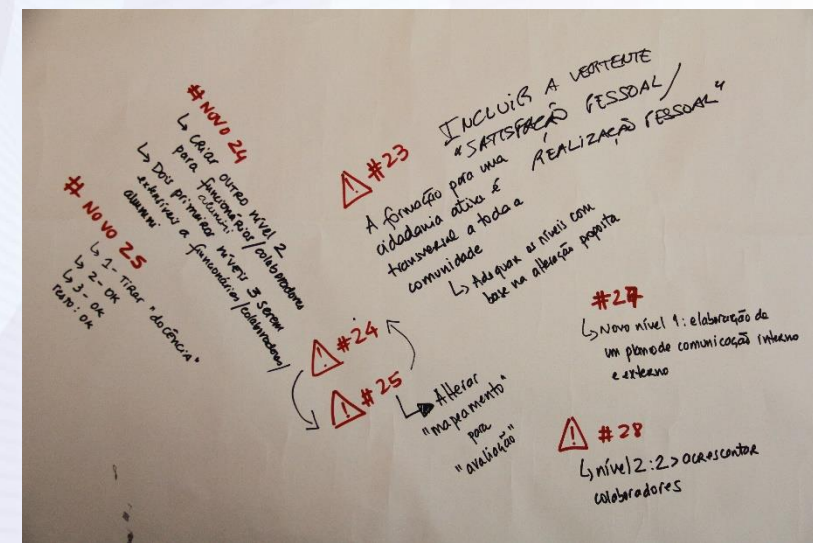 # NOVO 24
↳ CRIAR OUTRO NÍVEL 2
para funcionários/colaboradores
alumni
↳ Dois primeiros níveis 3 serem
extensíveis a funcionários/colaboradores/
alumni
# NOVO 25
↳ 1- TIRAR "DOCÊNCIA"
↳ 2- OK
↳ 3- OK
resto: OK
⚠ #23
INCLUIR A VERTENTE
"SATISFAÇÃO PESSOAL/
REALIZAÇÃO PESSOAL"
A formação para uma
cidadania ativa é
transversal a toda a
comunidade
↳ Adequar os níveis com
base na alteração proposta
⚠ #24
⚠ #25
↳ Alterar
"mapeamento"
para
"avaliação"
#27
↳ Novo nível 1: elaboração de
um plano de comunicação interno
e externo
⚠ #28
↳ nível 2: 2 > acrescentar
colaboradores